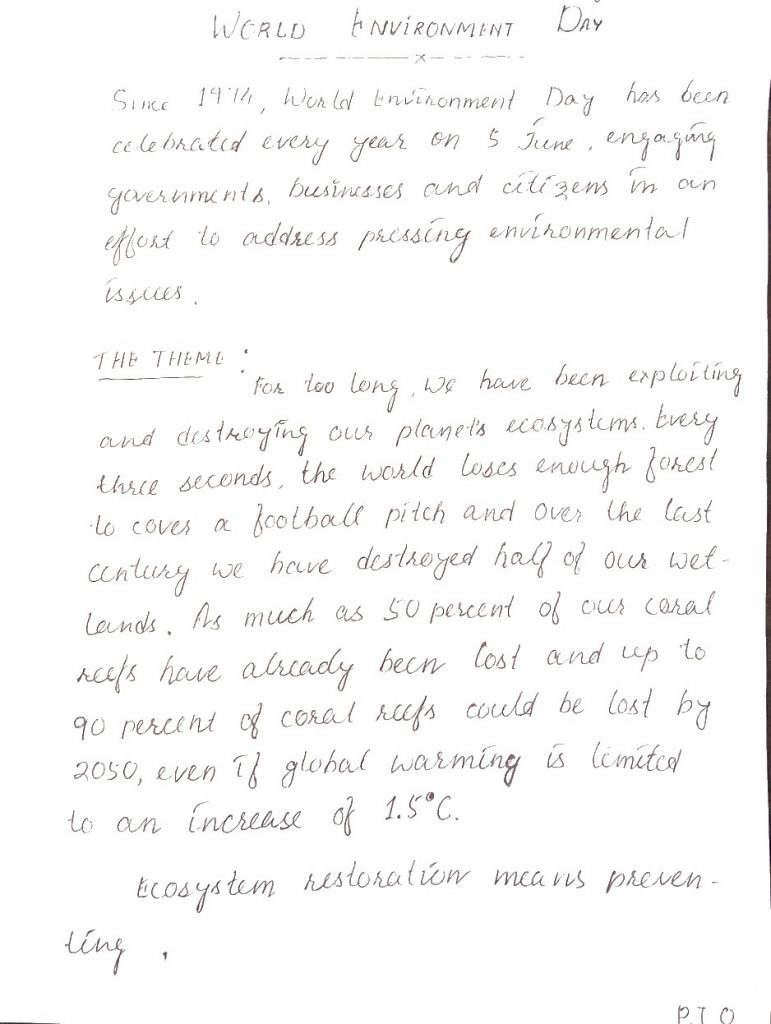 WORLD ENVIRONMENT DAY
Since 1974, World Environment Day has been
celebrated every year on 5 June, engaging
governments, businesses and citizens in an
effort to address pressing environmental
issues.
THE THEME :
For too long, we have been exploiting
and destroying our planet's ecosystems. Every
three seconds, the world loses enough forest
to cover a football pitch and over the last
century we have destroyed half of our wet-
lands. As much as 50 percent of our coral
reefs have already been lost and up to
90 percent of coral reefs could be lost by
2050, even if global warming is limited
to an increase of 1.5°C.
Ecosystem restoration means preven-
ting.
P.T.O